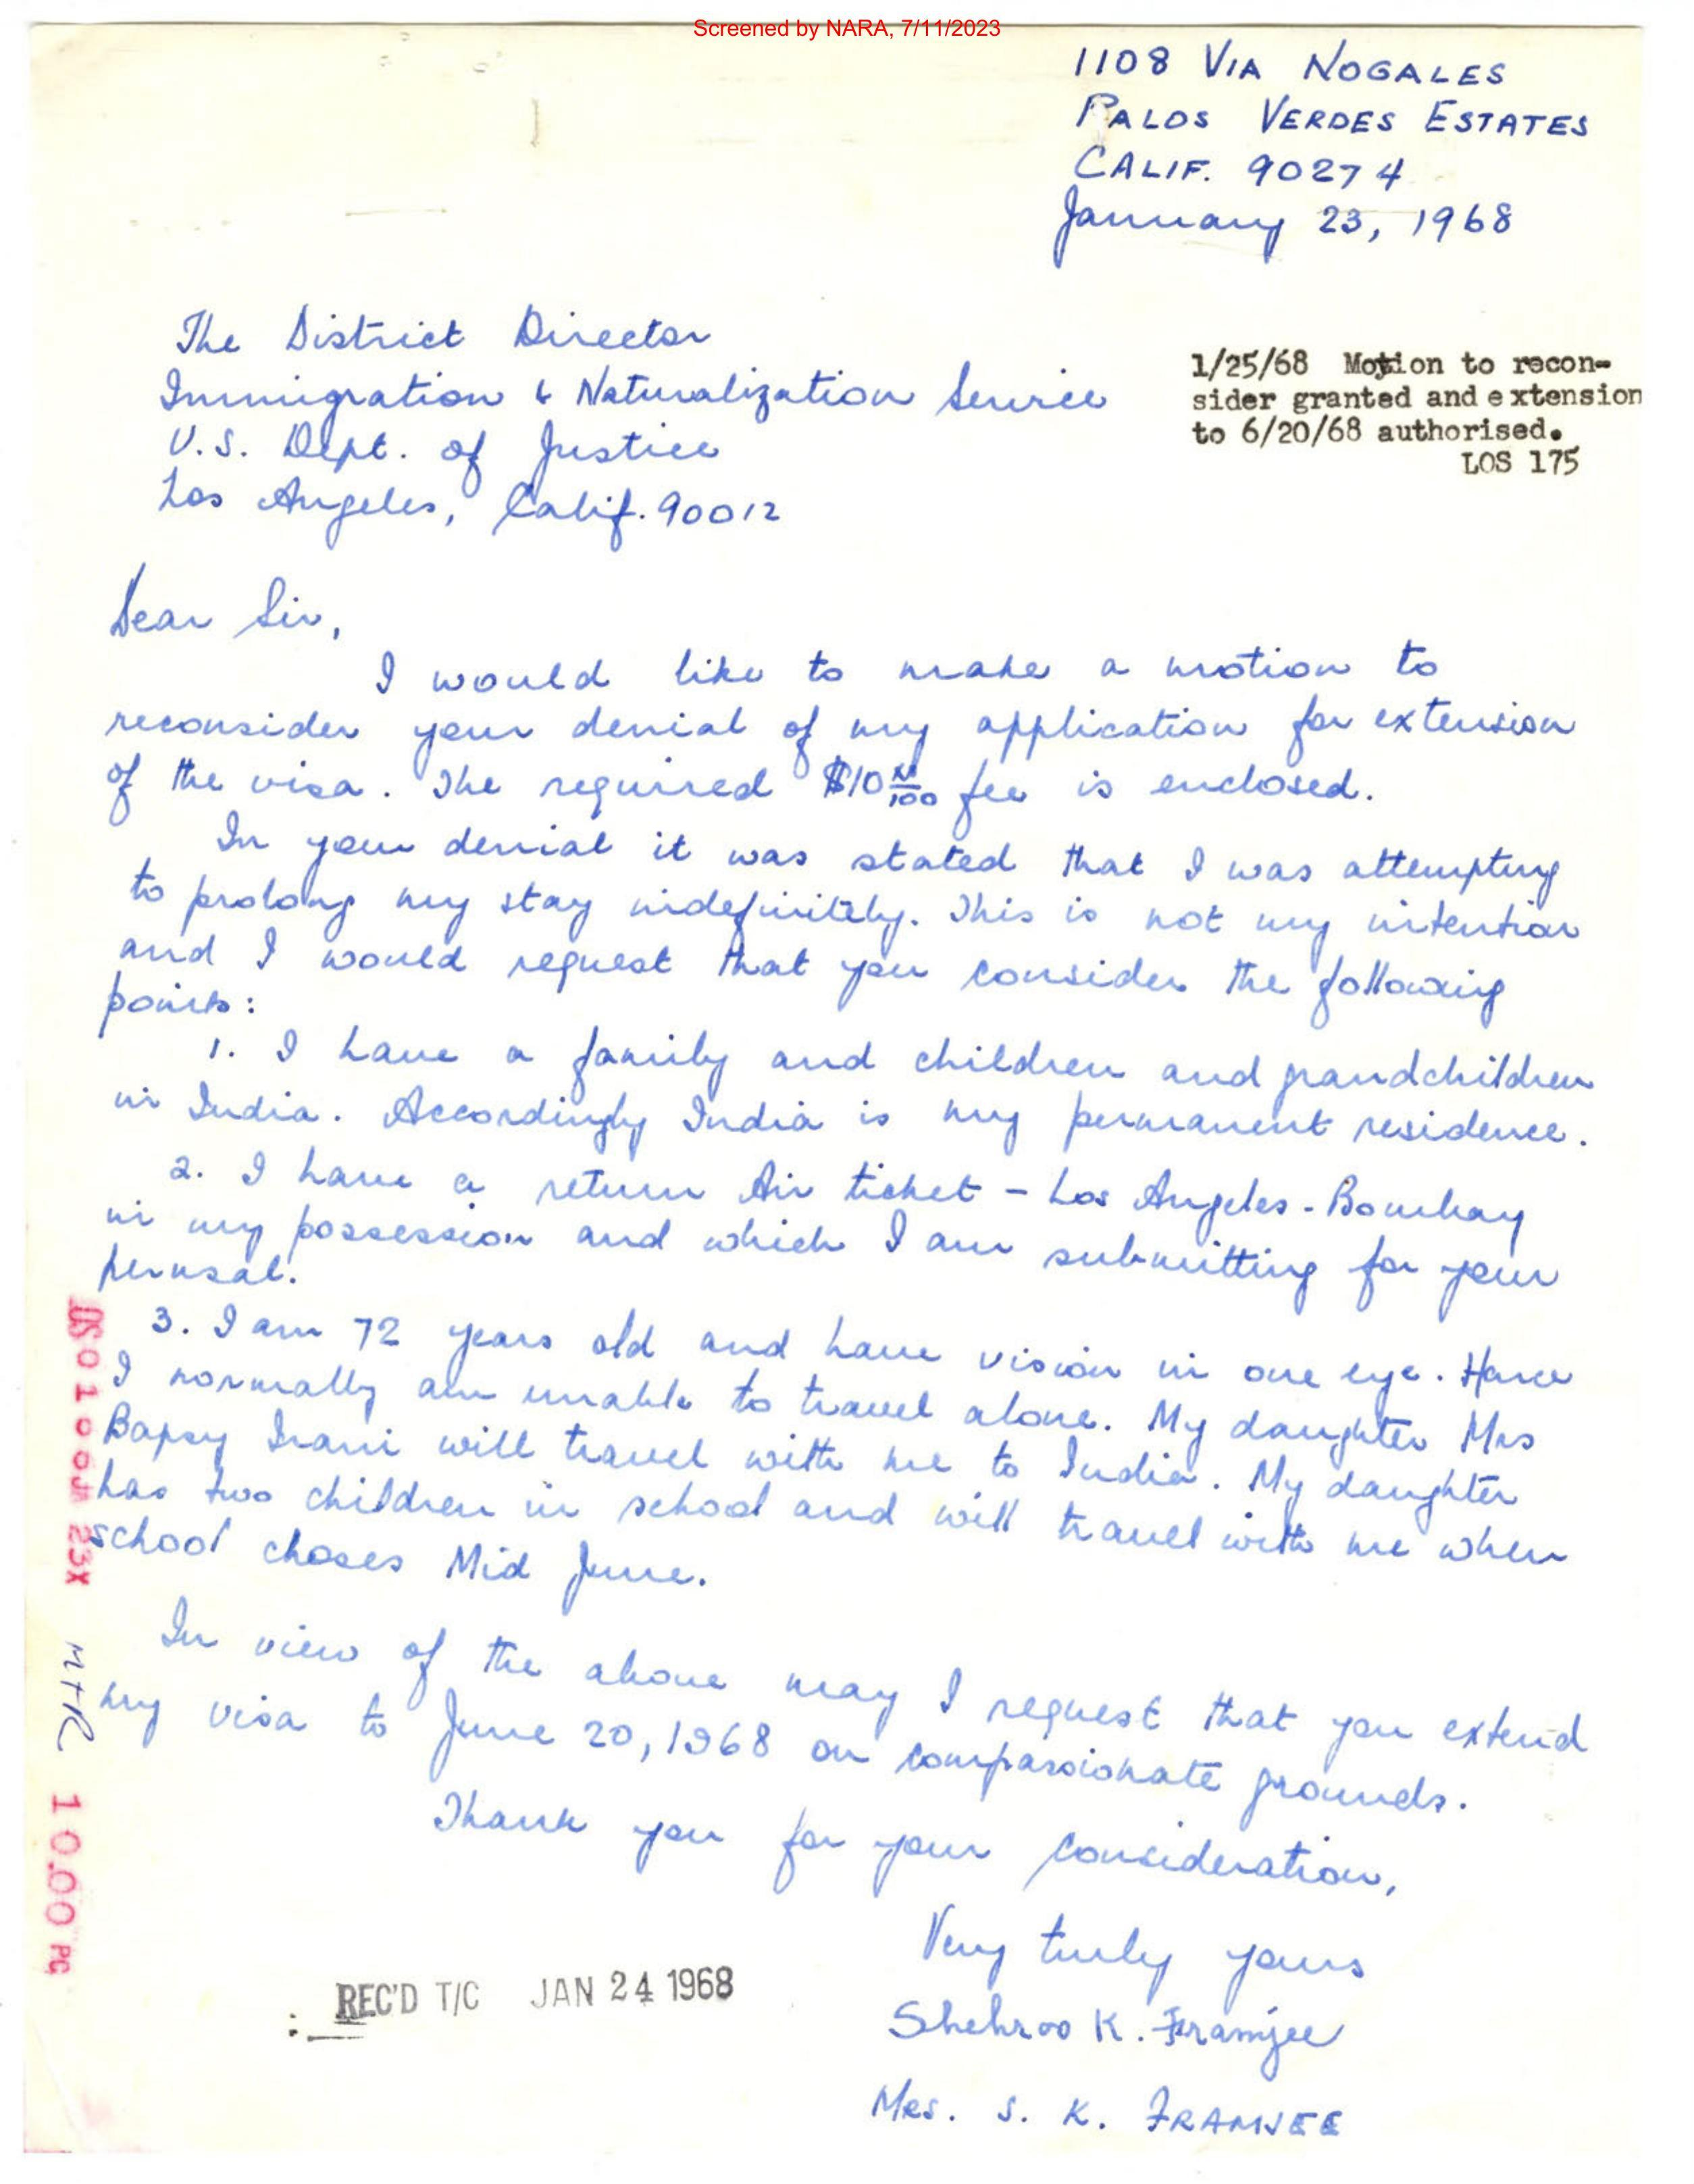 Screened by NARA, 7/11/2023
1108 VIA NOGALES
PALOS VERDES ESTATES
CALIF. 90274
January 23, 1968
The District Director
Immigration & Naturalization Service
U.S. Dept. of Justice
Los Angeles, Calif. 90012
1/25/68 Motion to recon-
sider granted and extension
to 6/20/68 authorised.
LOS 175
Dear Sir,
I would like to make a motion to
reconsider your denial of my application for extension
of the visa. The required $10 №/100 fee is enclosed.
In your denial it was stated that I was attempting
to prolong my stay indefinitely. This is not my intention
and I would request that you consider the following
points:
1. I have a family and children and grandchildren
in India. Accordingly India is my permanent residence.
2. I have a return Air ticket - Los Angeles - Bombay
in my possession and which I am submitting for your
perusal.
3. I am 72 years old and have vision in one eye. Hence
I normally am unable to travel alone. My daughter Mrs
Bapsy Irani will travel with me to India. My daughter
has two children in school and will travel with me when
school choses Mid June.
In view of the above may I request that you extend
my visa to June 20, 1968 on compassionate grounds.
Thank you for your consideration,
Very truly yours
Shehroo K. Framjee
Mrs. S. K. FRAMJEE
REC'D T/C JAN 24 1968
23X MTR 10.00 PG